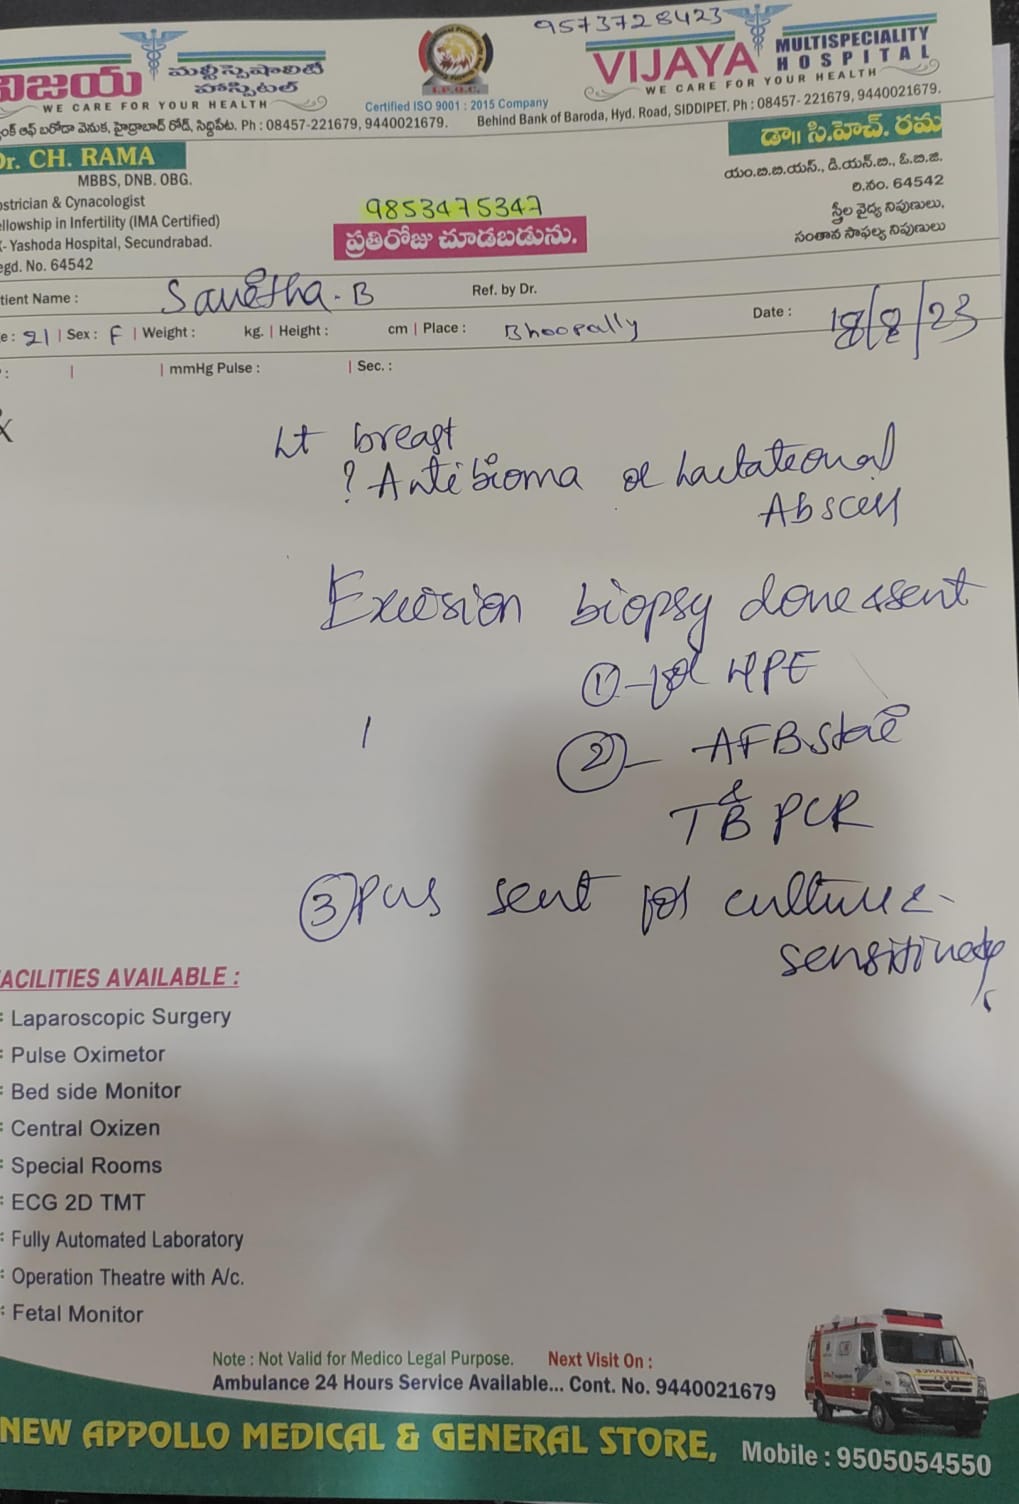 9573728423
విజయ మల్టీస్పెషాలిటీ
హాస్పిటల్
WE CARE FOR YOUR HEALTH
I.P.Q.C.
Certified ISO 9001 : 2015 Company
VIJAYA MULTISPECIALITY
HOSPITAL
WE CARE FOR YOUR HEALTH
ంక్ ఆఫ్ బరోడా వెనుక, హైద్రాబాద్ రోడ్, సిద్దిపేట. Ph : 08457-221679, 9440021679.
Behind Bank of Baroda, Hyd. Road, SIDDIPET. Ph : 08457- 221679, 9440021679.
Dr. CH. RAMA
MBBS, DNB. OBG.
stetrician & Cynacologist
ellowship in Infertility (IMA Certified)
- Yashoda Hospital, Secundrabad.
egd. No. 64542
9853475347
ప్రతిరోజు చూడబడును.
డా॥ సి.హెచ్. రమ
యం.బి.బి.యస్., డి.యన్.బి., ఓ.బి.జి.
రి.నం. 64542
స్త్రీల వైద్య నిపుణులు,
సంతాన సాఫల్య నిపుణులు
tient Name : B Ref. by Dr.
e : 21 | Sex : F | Weight : kg. | Height : cm | Place : Bhoopally Date : 18/8/23
: | | mmHg Pulse : | Sec. :
Lt breast
? Antibioma or Lactational
Abscess
Excision biopsy done & sent
① - for HPE
② - AFB
&
TB PCR
③ Pus sent for culture &
sensitivity
ACILITIES AVAILABLE :
Laparoscopic Surgery
Pulse Oximetor
Bed side Monitor
Central Oxizen
Special Rooms
ECG 2D TMT
Fully Automated Laboratory
Operation Theatre with A/c.
Fetal Monitor
Note : Not Valid for Medico Legal Purpose. Next Visit On :
Ambulance 24 Hours Service Available... Cont. No. 9440021679
NEW APPOLLO MEDICAL & GENERAL STORE, Mobile : 9505054550